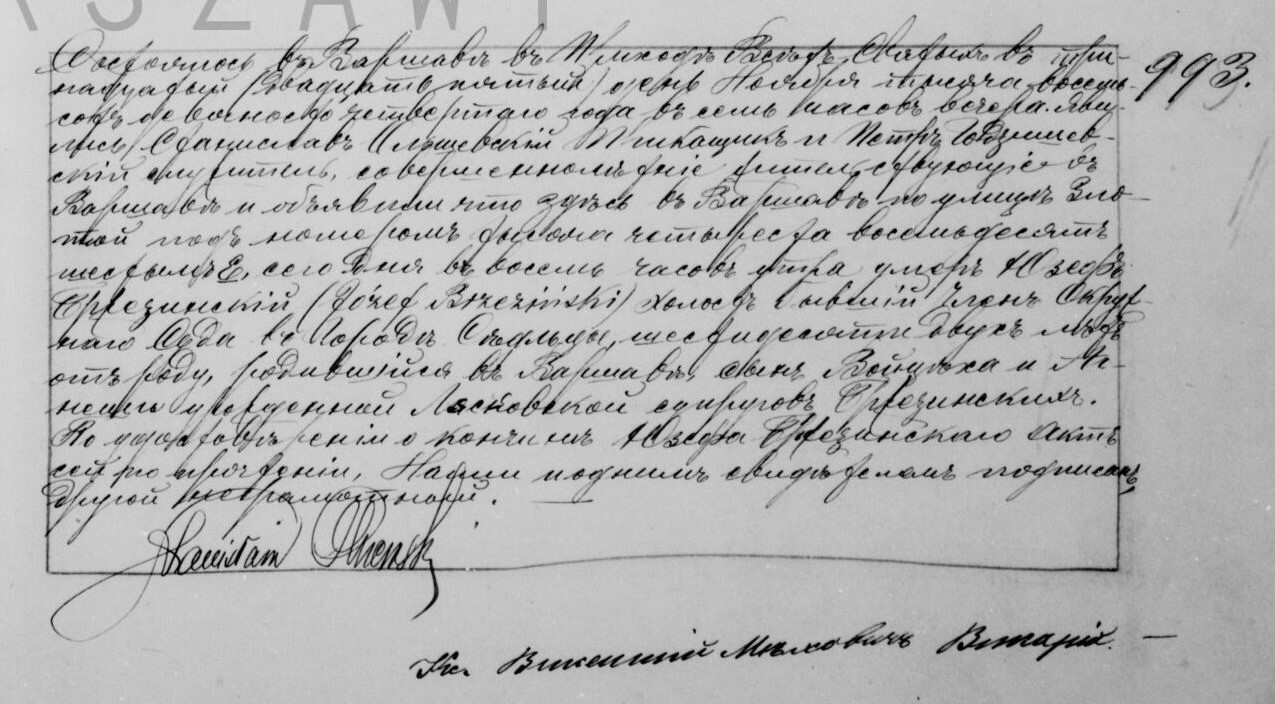 SZAW
993.
Состоялось въ Варшавѣ въ Приходѣ Всѣхъ Святыхъ въ три-
надцатый (двадцать пятый) день Ноября тысяча восемь-
сотъ девяносто четвертаго года въ семь часовъ вечера. Яви-
лись, Станиславъ Прикащикъ и Петръ
скій служитель, совершеннолѣтніе жительствующіе въ
Варшавѣ и объявили что здѣсь въ Варшавѣ по улицѣ Зло-
той подъ номеромъ тысяча четыреста восемьдесятъ
шестымъ Е, сего дня въ восемь часовъ утра умеръ Юзефъ
Бржезинскій (Józef Brzeziński) холостъ бывшій Членъ Окруж-
наго Суда въ Городѣ Сѣдльцы, шестидесяти двухъ лѣтъ
отъ роду, родившійся въ Варшавѣ, сынъ Войцѣха и Аг-
нешки урожденной Лясковской супруговъ Бржезинскихъ.
По удостовѣреніи о кончинѣ Юзефа Бржезинскаго Актъ
сей по прочтеніи, Нами и однимъ свидѣтелемъ подписанъ,
другой неграмотный.
Stanisław
Кс. Викентій Викарій. —